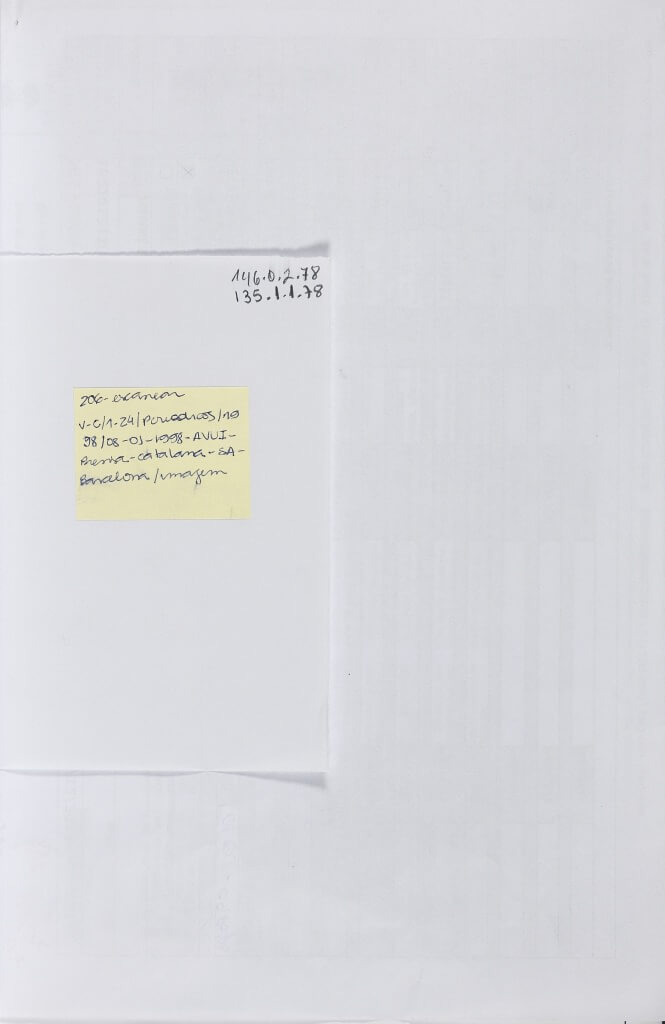 146.0.2.78
135.1.1.78
206-
V-C/1-24/Periodicos/19
98/08-01-1998-AVUI-
Premsa-catalana-SA-
Barcelona/imagem